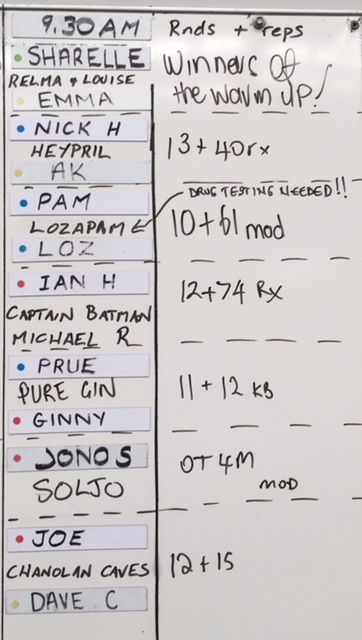 9.30AM Rnds + reps
SHARELLE Winners of
RELMA & LOUISE
EMMA the warm up!
NICK H
HEYPRIL 13 + 40rx
AK
DRUG TESTING NEEDED!!
PAM
LOZAPAM 10+61 mod
LOZ
IAN H 12+74 Rx
CAPTAIN BATMAN
MICHAEL R
PRUE
PURE GIN 11 + 12 KB
GINNY
JONO S OT 4M
SOLJO MOD
JOE
CHANOLAN CAVES 12 + 15
DAVE C